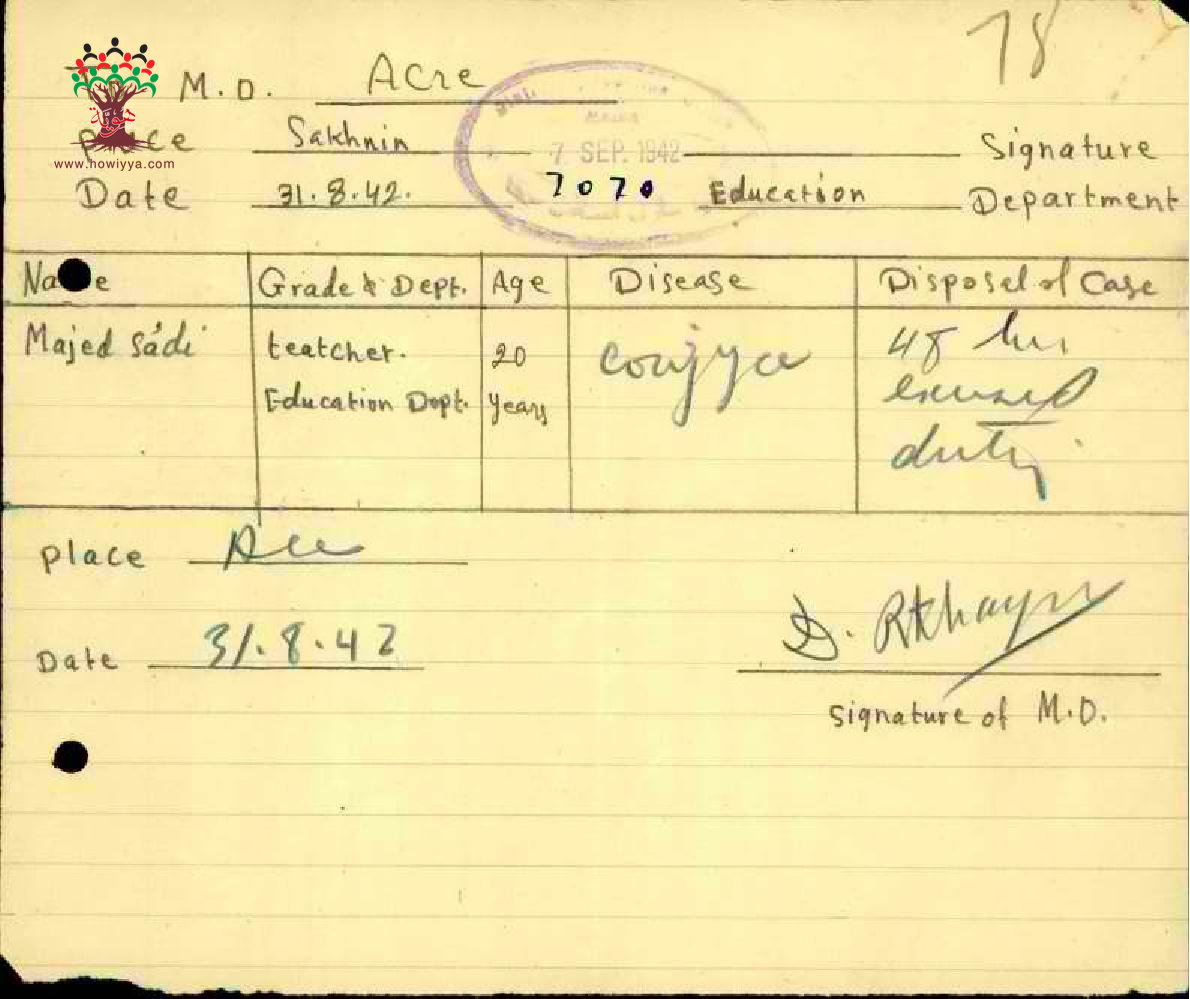 78
M.D. Acre
Place Sakhnin Signature
7 SEP. 1942
www.howiyya.com
Date 31.8.42. 7070 Education Department
Name Grade & Dept. Age Disease Disposal of Case
Majed Sádi teatcher. 20 48 hrs
Education Dept. years excused
duty
Place Acre
Date 31.8.42
Signature of M.D.